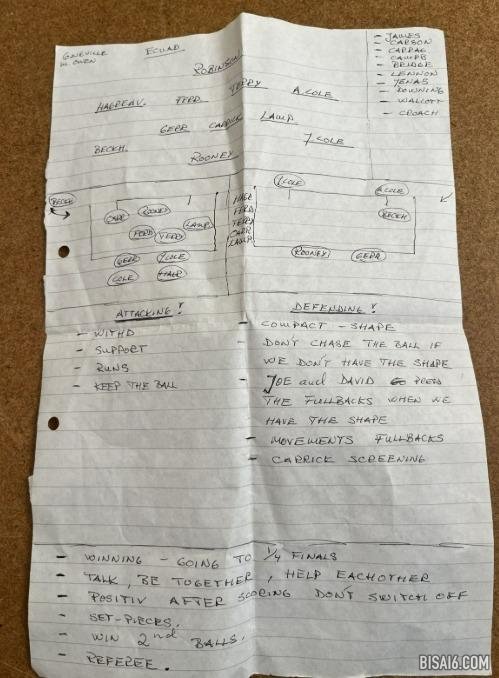 G. NEVILLE
M. OWEN
ECUAD
ROBINSON
HAGREAV. FERD. TERRY A. COLE
GERR CARRICK LAMP.
BECKH. J. COLE
ROONEY
- JAMES
- CARSON
- CARRAG
- CAMPB
- BRIDGE
- LENNON
- JENAS
- DOWNING
- WALCOTT
- CROACH
BECKH
CARR ROONEY
FERD TERRY LAMP
GERR J COLE
COLE HARG
HARG
FERD
TERRY
CARR
LAMP
J COLE A COLE
BECKH
ROONEY GERR
ATTACKING!
- WITHD
- SUPPORT
- RUNS
- KEEP THE BALL
DEFENDING!
- COMPACT - SHAPE
- DON'T CHASE THE BALL IF
WE DON'T HAVE THE SHAPE
- JOE and DAVID PRESS
THE FULLBACKS WHEN WE
HAVE THE SHAPE
- MOVEMENTS FULLBACKS
- CARRICK SCREENING
- WINNING - GOING TO 1/4 FINALS
- TALK, BE TOGETHER, HELP EACHOTHER
- POSITIV AFTER SCORING DON'T SWITCH OFF
- SET-PIECES.
- WIN 2nd BALLS.
- REFEREE.
BISAI6.COM